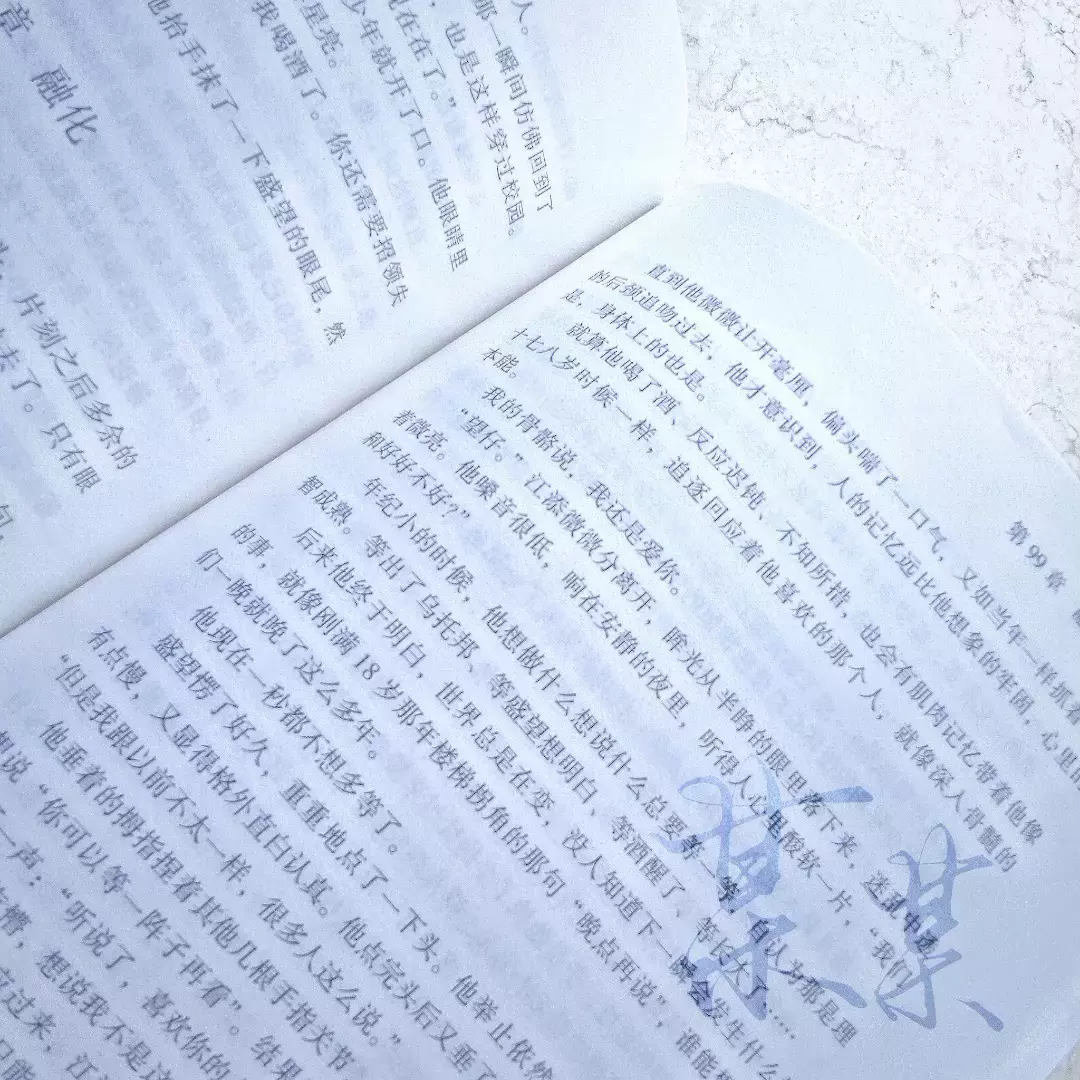 人。
那一瞬间仿佛回到了
也是这样穿过校园。
现在在了。”
少年就开了口。他眼睛里
星亮。
我喝酒了。你还需要招领失
他抬手抹了一下盛望的眼尾，然
章 融化
片刻之后多余的
去了。只有眼
第 99 章
直到他微微让开毫厘，偏头喘了一口气，又如当年一样抓着
的后颈追吻过去，他才意识到，人的记忆远比他想象的牢固，心里
是，身体上的也是。
就算他喝了酒、反应迟钝、不知所措，也会有肌肉记忆带着他像
十七八岁时候一样，追逐回应着他喜欢的那个人，就像深入骨髓的
本能。
我的骨骼说，我还是爱你。
“望仔。”江添微微分离开，眸光从半睁的眼里落下来，
着微亮。他嗓音很低，响在安静的夜里，听得人心里酸软一片，“我们
和好好不好？”
年纪小的时候，他想做什么想说什么总要等一等，自认为那是理
智成熟。等出了乌托邦、等盛望想明白、等酒醒了、等长大……
后来他终于明白，世界总是在变，没人知道下一瞬会发生什么
的事，就像刚满 18 岁那年楼梯拐角的那句“晚点再说”，谁能
们一晚就晚了这么多年。
他现在一秒都不想多等了。
盛望愣了好久，重重地点了一下头。他举止依然
有点慢，又显得格外直白认真。他点完头后又垂
“但是我跟以前不太一样，很多人这么说。”
他垂着的拇指捏着其他几根手指关节
想说“你可以等一阵子再看”。结果
一声：“听说了，喜欢你的
懵，想说我不是这
应过来，江
某某